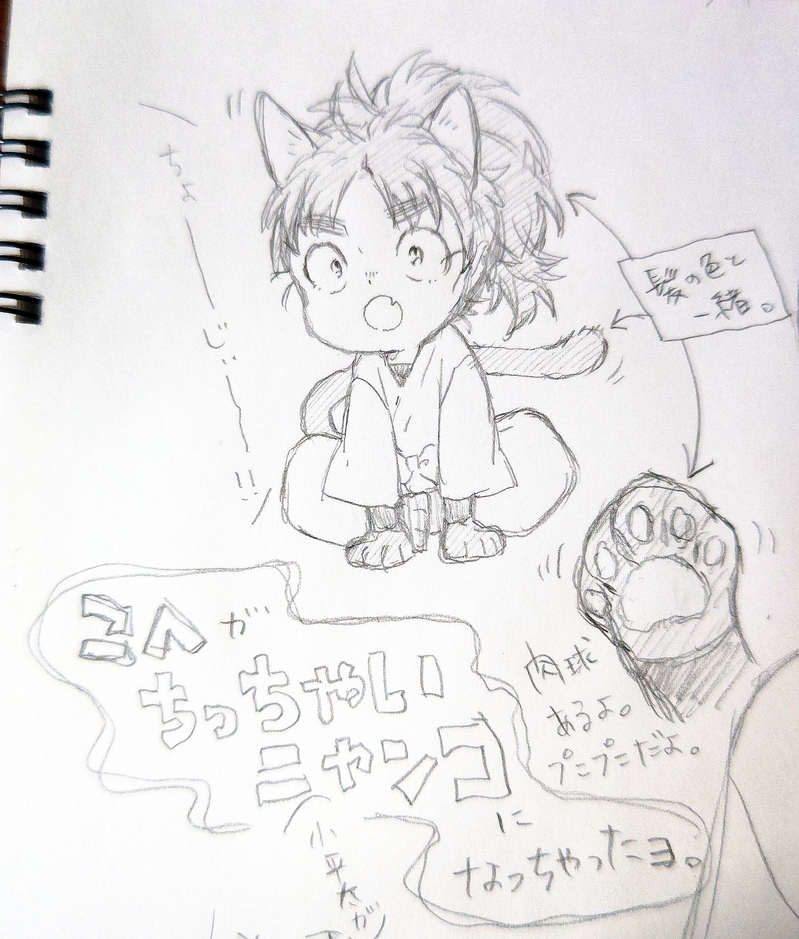 ちょ
じーッ
髪の色と
一緒。
こへが
ちっちゃい
ニャンコ
に
なっちゃったヨ。
肉球
あるよ。
プニプニだよ。
小平太が